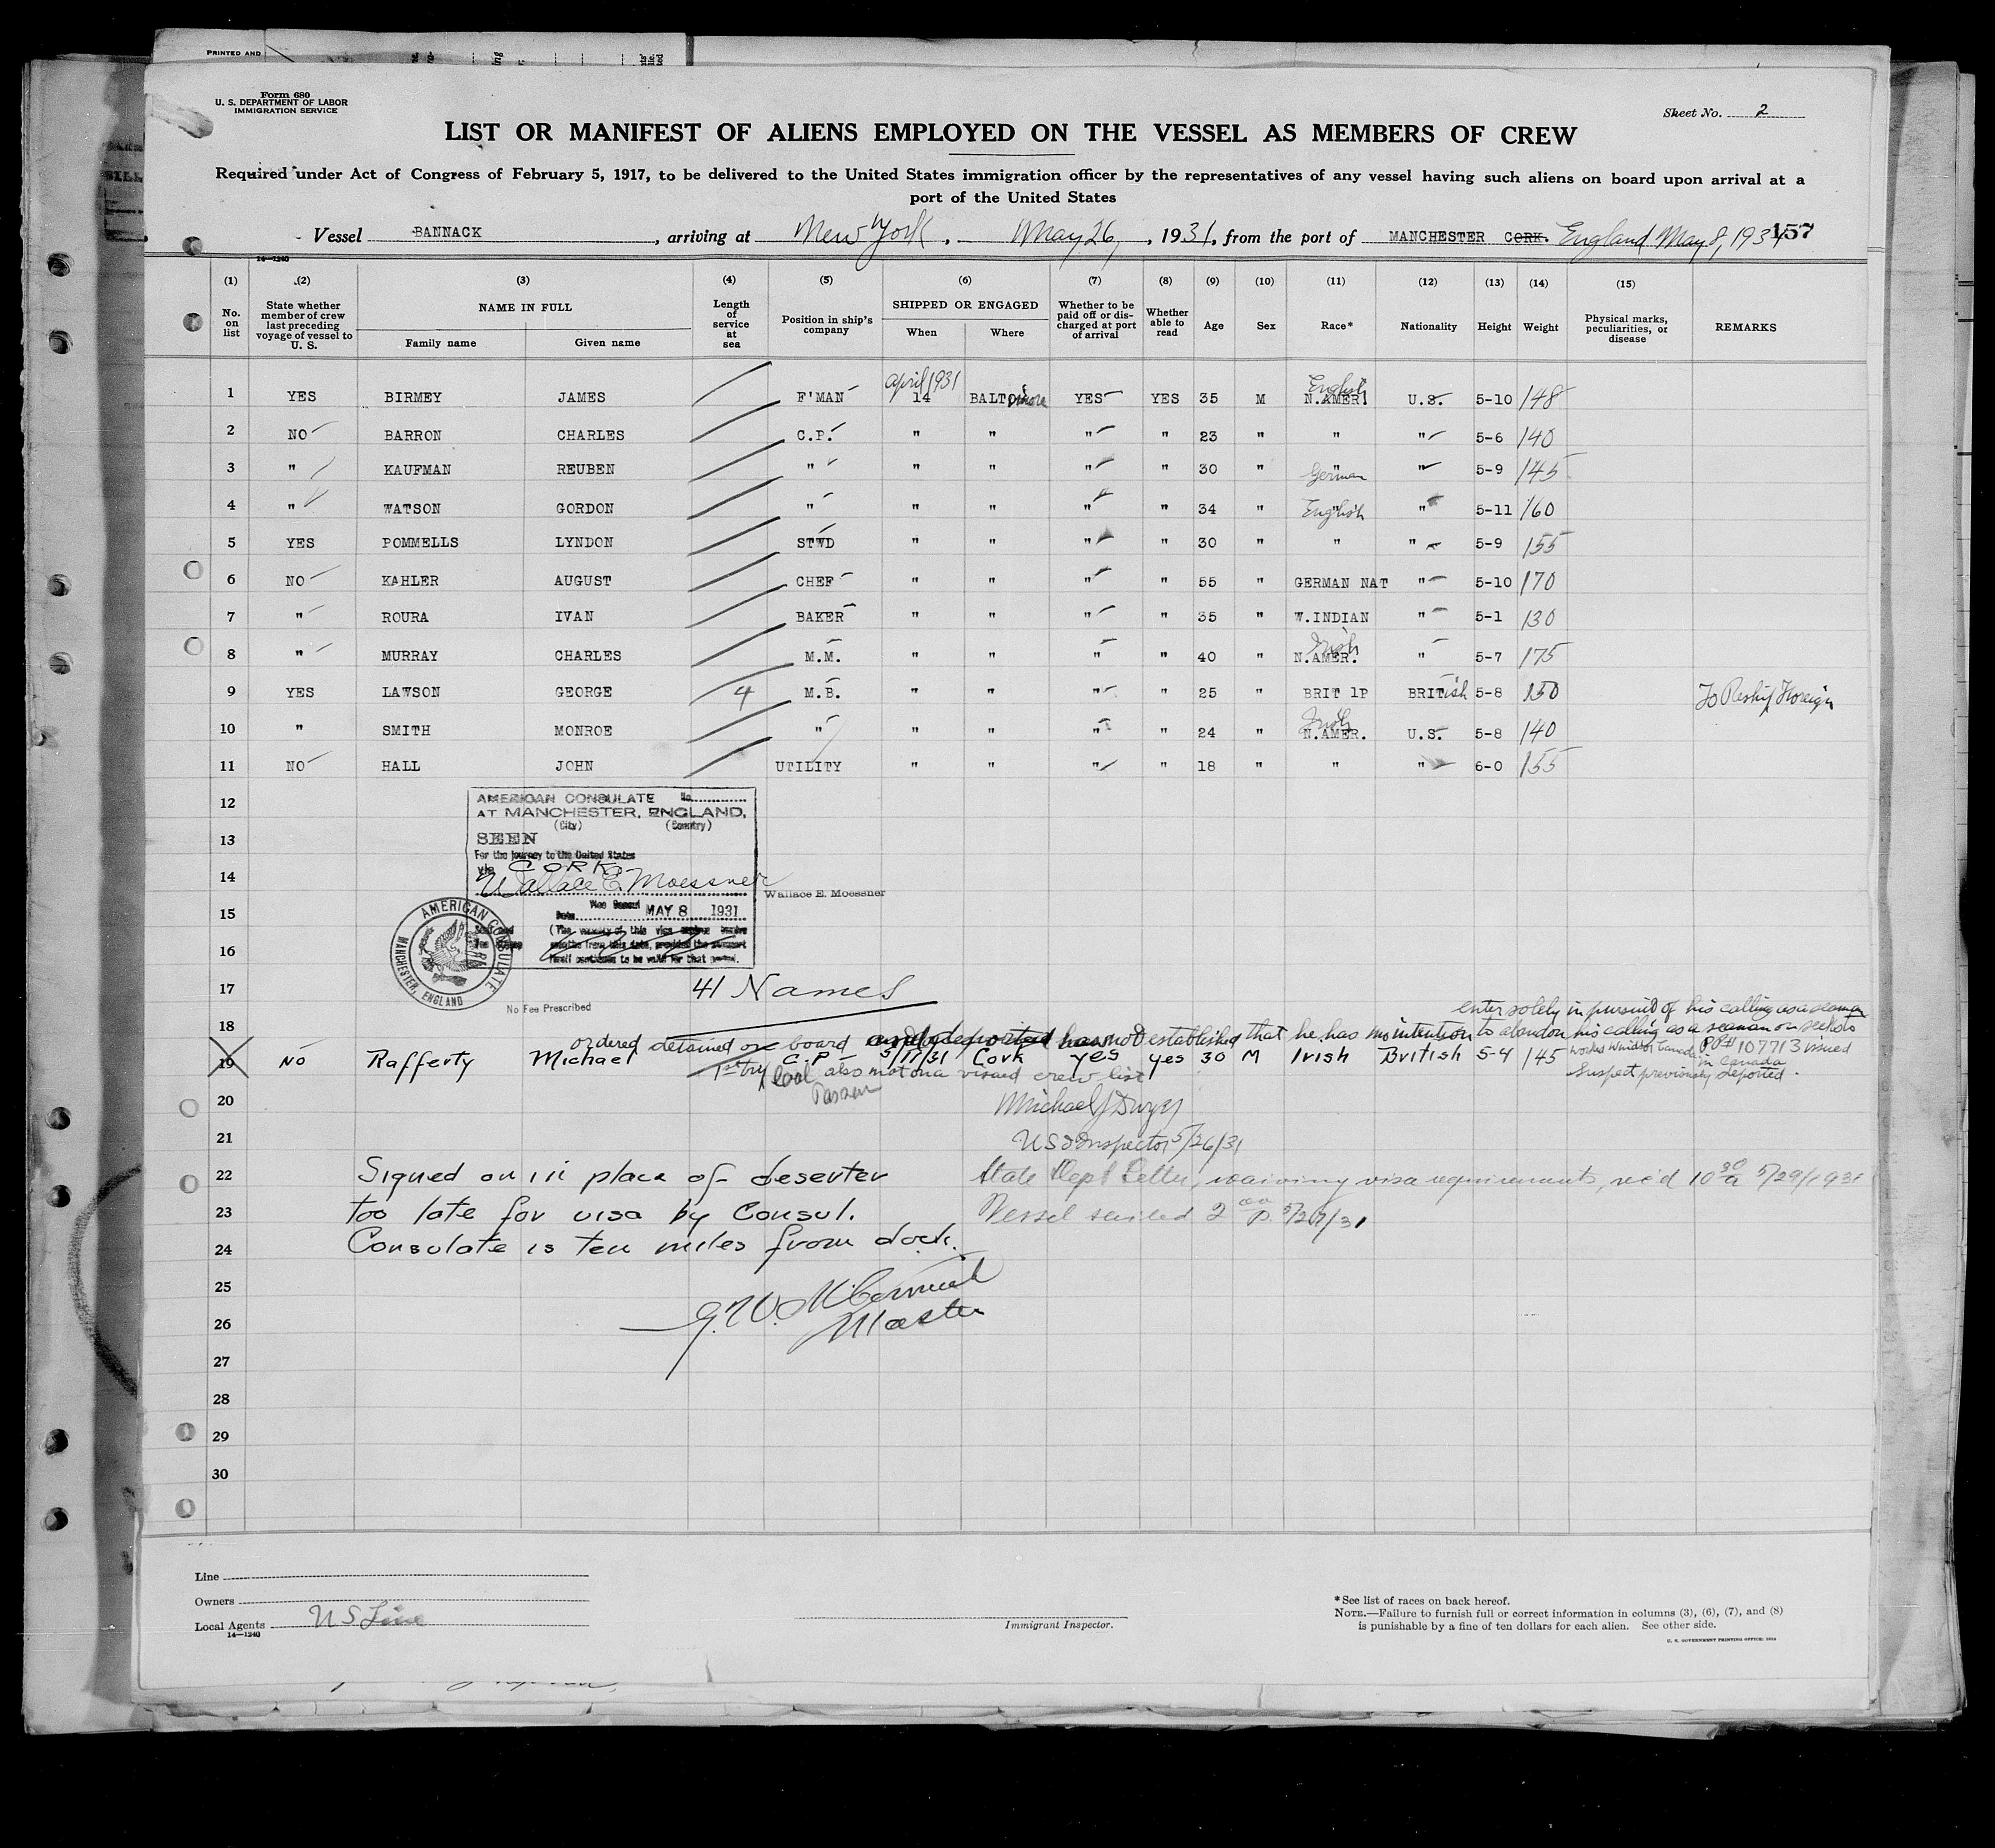 PRINTED AND
Form 680
U. S. DEPARTMENT OF LABOR
IMMIGRATION SERVICE
Sheet No. 2
LIST OR MANIFEST OF ALIENS EMPLOYED ON THE VESSEL AS MEMBERS OF CREW
Required under Act of Congress of February 5, 1917, to be delivered to the United States immigration officer by the representatives of any vessel having such aliens on board upon arrival at a
port of the United States
Vessel BANNACK, arriving at New York, May 26, 1931, from the port of MANCHESTER CORK. England May 8, 1931
157
14—1240
(1) (2) (3) (4) (5) (6) (7) (8) (9) (10) (11) (12) (13) (14) (15)
No. on list
State whether member of crew last preceding voyage of vessel to U. S.
NAME IN FULL
Family name
Given name
Length of service at sea
Position in ship's company
SHIPPED OR ENGAGED
When
Where
Whether to be paid off or discharged at port of arrival
Whether able to read
Age
Sex
Race*
Nationality
Height
Weight
Physical marks, peculiarities, or disease
REMARKS
April 1931 English
1 YES BIRMEY JAMES F'MAN 14 BALTimore YES YES 35 M N.AMER. U.S. 5-10 148
2 NO BARRON CHARLES C.P. " " " " 23 " " " 5-6 140
3 " KAUFMAN REUBEN " " " " " 30 " " German " 5-9 145
4 " WATSON GORDON " " " " " 34 " " English " 5-11 160
5 YES POMMELLS LYNDON STWD " " " " 30 " " " 5-9 155
6 NO KAHLER AUGUST CHEF " " " " 55 " GERMAN NAT " 5-10 170
7 " ROURA IVAN BAKER " " " " 35 " W.INDIAN " 5-1 130
Irish
8 " MURRAY CHARLES M.M. " " " " 40 " N.AMER. " 5-7 175
9 YES LAWSON GEORGE 4 M.B. " " " " 25 " BRIT 1P BRITish 5-8 150 To Reship Foreign
10 " SMITH MONROE " " " " " 24 " N.AMER. U.S. 5-8 140
11 NO HALL JOHN UTILITY " " " " 18 " " " 6-0 155
12
13
14
15
16
17
18
AMERICAN CONSULATE No.
AT MANCHESTER, ENGLAND,
(City) (Country)
SEEN
For the journey to the United States
via CORK
Wallace E. Moessner
Wallace E. Moessner
Vice Consul
Date MAY 8 1931
(The validity of this visa expires twelve
months from this date, provided the passport
itself continues to be valid for that period.
AMERICAN CONSULATE
MANCHESTER, ENGLAND
No Fee Prescribed
41 Names
enter solely in pursuit of his calling as a seaman
ordered detained on board and deported has not established that he has no intention to abandon his calling as a seaman or seeks to
19 NO Rafferty Michael C.P. 5/11/31 Cork yes yes 30 M Irish British 5-4 145
Works Windsor Canada PP# 107713 issued
in Canada
Suspect previously deported.
1st try
also not on a visaed crew list
20
Michael J Dwyer
21
US Inspector 5/26/31
22 Signed on in place of deserter
State Dept Letter, waiving visa requirements, rec'd 10 30 a 5/29/1931
23 too late for visa by Consul.
Vessel sailed 2 00 p. 5/29/31
24 Consulate is ten miles from dock.
25
26
Master
27
28
29
30
Line
Owners
Local Agents US Line
14—1240
Immigrant Inspector.
*See list of races on back hereof.
NOTE.—Failure to furnish full or correct information in columns (3), (6), (7), and (8)
is punishable by a fine of ten dollars for each alien. See other side.
U. S. GOVERNMENT PRINTING OFFICE: